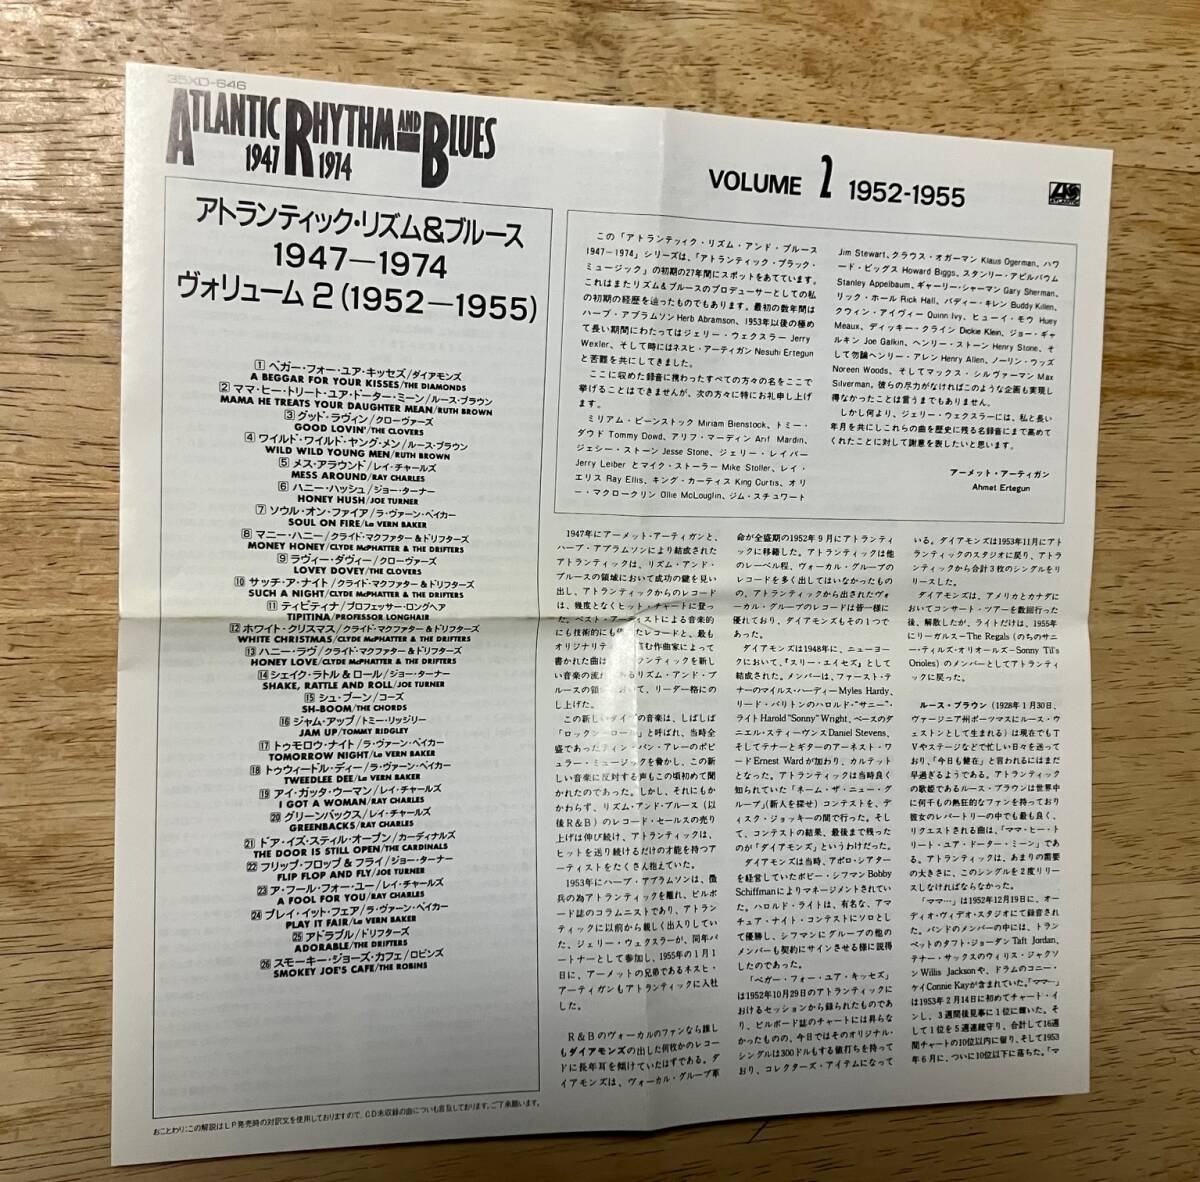 35XD-646
ATLANTIC RHYTHM AND BLUES
1947 1974
VOLUME 2 1952-1955
ATLANTIC
アトランティック・リズム&ブルース
1947—1974
ヴォリューム 2 (1952—1955)
1 ベガー・フォー・ユア・キッセズ/ダイアモンズ
A BEGGAR FOR YOUR KISSES/THE DIAMONDS
2 ママ・ヒー・トリート・ユア・ドーター・ミーン/ルース・ブラウン
MAMA HE TREATS YOUR DAUGHTER MEAN/RUTH BROWN
3 グッド・ラヴィン/クローヴァーズ
GOOD LOVIN'/THE CLOVERS
4 ワイルド・ワイルド・ヤング・メン/ルース・ブラウン
WILD WILD YOUNG MEN/RUTH BROWN
5 メス・アラウンド/レイ・チャールズ
MESS AROUND/RAY CHARLES
6 ハニー・ハッシュ/ジョー・ターナー
HONEY HUSH/JOE TURNER
7 ソウル・オン・ファイア/ラ・ヴァーン・ベイカー
SOUL ON FIRE/La VERN BAKER
8 マニー・ハニー/クライド・マクファター&ドリフターズ
MONEY HONEY/CLYDE McPHATTER & THE DRIFTERS
9 ラヴィー・ダヴィー/クローヴァーズ
LOVEY DOVEY/THE CLOVERS
10 サッチ・ア・ナイト/クライド・マクファター&ドリフターズ
SUCH A NIGHT/CLYDE McPHATTER & THE DRIFTERS
11 ティピティナ/プロフェッサー・ロングヘア
TIPITINA/PROFESSOR LONGHAIR
12 ホワイト・クリスマス/クライド・マクファター&ドリフターズ
WHITE CHRISTMAS/CLYDE McPHATTER & THE DRIFTERS
13 ハニー・ラヴ/クライド・マクファター&ドリフターズ
HONEY LOVE/CLYDE McPHATTER & THE DRIFTERS
14 シェイク・ラトル&ロール/ジョー・ターナー
SHAKE, RATTLE AND ROLL/JOE TURNER
15 シュ・ブーン/コーズ
SH-BOOM/THE CHORDS
16 ジャム・アップ/トミー・リッジリー
JAM UP/TOMMY RIDGLEY
17 トゥモロウ・ナイト/ラ・ヴァーン・ベイカー
TOMORROW NIGHT/La VERN BAKER
18 トゥウィードル・ディー/ラ・ヴァーン・ベイカー
TWEEDLEE DEE/La VERN BAKER
19 アイ・ガッタ・ウーマン/レイ・チャールズ
I GOT A WOMAN/RAY CHARLES
20 グリーンバックス/レイ・チャールズ
GREENBACKS/RAY CHARLES
21 ドア・イズ・スティル・オープン/カーディナルズ
THE DOOR IS STILL OPEN/THE CARDINALS
22 フリップ・フロップ&フライ/ジョー・ターナー
FLIP FLOP AND FLY/JOE TURNER
23 ア・フール・フォー・ユー/レイ・チャールズ
A FOOL FOR YOU/RAY CHARLES
24 プレイ・イット・フェア/ラ・ヴァーン・ベイカー
PLAY IT FAIR/La VERN BAKER
25 アドラブル/ドリフターズ
ADORABLE/THE DRIFTERS
26 スモーキー・ジョーズ・カフェ/ロビンズ
SMOKEY JOE'S CAFE/THE ROBINS
おことわり:この解説はLP発売時の対訳文を使用しておりますので、CD未収録の曲についも言及しております。ご了承願います。
この「アトランティィク・リズム・アンド・ブルース
1947−1974」シリーズは、「アトランティック・ブラック・
ミュージック」の初期の27年間にスポットをあてています。
これはまたリズム&ブルースのプロデューサーとしての私
の初期の経歴を辿ったものでもあります。最初の数年間は
ハーブ・アブラムソンHerb Abramson、1953年以後の極め
て長い期間にわたってはジェリー・ウェクスラー Jerry
Wexler、そして時にはネスヒ・アーティガン Nesuhi Ertegun
と苦難を共にしてきました。
ここに収めた録音に携わったすべての方々の名をここで
挙げることはできませんが、次の方々に特にお礼申し上げ
ます。
ミリアム・ビーンストック Miriam Bienstock、トミー・
ダウド Tommy Dowd、アリフ・マーディン Arif Mardin、
ジェシー・ストーン Jesse Stone、ジェリー・レイバー
Jerry Leiber とマイク・ストーラー Mike Stoller、レイ・
エリス Ray Ellis、キング・カーティス King Curtis、オリ
ー・マクロークリン Ollie McLouglin、ジム・スチュワート
Jim Stewart、クラウス・オガーマン Klaus Ogerman、ハワ
ード・ビッグス Howard Biggs、スタンリー・アピルバウム
Stanley Appelbaum、ギャーリー・シャーマン Gary Sherman、
リック・ホール Rick Hall、バディー・キレン Buddy Killen、
クウィン・アイヴィー Quinn Ivy、ヒューイ・モウ Huey
Meaux、ディッキー・クライン Dickie Klein、ジョー・ギャ
ルキン Joe Galkin、ヘンリー・ストーン Henry Stone、そ
して勿論ヘンリー・アレン Henry Allen、ノーリン・ウッズ
Noreen Woods、そしてマックス・シルヴァーマン Max
Silverman。彼らの尽力がなければこのような企画も実現し
得なかったことは言うまでもありません。
しかし何より、ジェリー・ウェクスラーには、私と長い
年月を共にしこれらの曲を歴史に残る名録音にまで高めて
くれたことに対して謝意を表したいと思います。
アーメット・アーティガン
Ahmet Ertegun
1947年にアーメット・アーティガンと、
ハーブ・アブラムソンにより結成された
アトランティックは、リズム・アンド・
ブルースの領域において成功の鍵を見い
出し、アトランティックからのレコード
は、幾度となくヒット・チャートに登っ
た。ベスト・アーティストによる音楽的
にも技術的にも レコードと、最も
オリジナリテ む作曲家によって
書かれた曲は ランティックを新し
い音楽の流 あるリズム・アンド・ブ
ルースの領 いて、リーダー格にの
し上げた。
この新しいタイプの音楽は、しばしば
「ロックンロール」と呼ばれ、当時全
盛であったティン・パン・アレーのポピ
ュラー・ミュージックを脅かし、この新
しい音楽に反対する声もこの頃初めて聞
かれたのであった。しかし、それにもか
かわらず、リズム・アンド・ブルース(以
後R&B)のレコード・セールスの売り
上げは伸び続け、アトランティックは、
ヒットを送り続けるだけの才能を持つア
ーティストをたくさん抱えていた。
1953年にハーブ・アブラムソンは、徴
兵の為アトランティックを離れ、ビルボ
ード誌のコラムニストであり、アトラン
ティックに以前から親しく出入りしてい
た、ジェリー・ウェクスラーが、同年パ
ートナーとして参加し、1955年の1月1
日に、アーメットの兄弟であるネスヒ・
アーティガンもアトランティックに入社
した。
R&Bのヴォーカルのファンなら誰し
もダイアモンズの出した何枚かのレコー
ドに長年耳を傾けていたはずである。ダ
イアモンズは、ヴォーカル・グループ革
命が全盛期の1952年9月にアトランティ
ックに移籍した。アトランティックは他
のレーベル程、ヴォーカル・グループの
レコードを多く出してはいなかったもの
の、アトランティックから出されたヴォ
ーカル・グループのレコードは皆一様に
優れており、ダイアモンズもその1つで
あった。
ダイアモンズは1948年に、ニューヨー
クにおいて、『スリー・エイセズ』として
結成された。メンバーは、ファースト・テ
ナーのマイルス・ハーディー Myles Hardy、
リード・バリトンのハロルド・“サニー”・
ライト Harold "Sonny" Wright、ベースのダ
ニエル・スティーヴンス Daniel Stevens、
そしてテナーとギターのアーネスト・ワ
ード Ernest Wardが加わり、カルテット
となった。アトランティックは当時良く
知られていた「ネーム・ザ・ニュー・グ
ループ」(新人を探せ)コンテストを、デ
ィスク・ジョッキーの間で行った。そし
て、コンテストの結果、最後まで残った
のが「ダイアモンズ」というわけだった。
ダイアモンズは当時、アポロ・シアター
を経営していたボビー・シフマン Bobby
Schiffmanによりマネージメントされてい
た。ハロルド・ライトは、有名な、アマ
チュア・ナイト・コンテストにソロとし
て優勝し、シフマンにグループの他の
メンバーも契約にサインさせる様に説得
したのであった。
「ベガー・フォー・ユア・キッセズ」
は1952年10月29日のアトランティックに
おけるセッションから録られたものであ
り、ビルボード誌のチャートには昇らな
かったものの、今日ではそのオリジナル・
シングルは300ドルもする値打ちを持って
おり、コレクターズ・アイテムになって
いる。ダイアモンズは1953年11月にアト
ランティックのスタジオに戻り、アトラ
ンティックから合計3枚のシングルをリ
リースした。
ダイアモンズは、アメリカとカナダに
おいてコンサート・ツアーを数回行った
後、解散したが、ライトだけは、1955年
にリーガルス−The Regals(のちのサニ
ー・ティルズ・オリオールズ−Sonny Til's
Orioles)のメンバーとしてアトランティ
ックに戻った。
ルース・ブラウン(1928年1月30日、
ヴァージニア州ポーツマスにルース・ウ
ェストンとして生まれる)は現在でもT
Vやステージなどで忙しい日々を送って
おり、「今日も健在」と言われるにはまだ
早過ぎるようである。アトランティック
の歌姫であるルース・ブラウンは世界中
に何千もの熱狂的なファンを持っており
彼女のレパートリーの中でも最も良く、
リクエストされる曲は、「ママ・ヒー・ト
リート・ユア・ドーター・ミーン」であ
る。アトランティックは、あまりの需要
の大きさに、このシングルを2度リリー
スしなければならなかった。
「ママ…」は1952年12月19日に、オー
ディオ・ヴィデオ・スタジオにて録音され
た。バンドのメンバーの中には、トラン
ペットのタフト・ジョーダン Taft Jordan、
テナー・サックスのウィリス・ジャクソ
ンWillis Jacksonや、ドラムのコニー・
ケイ Connie Kayが含まれていた。「ママ…」
は1953年2月14日に初めてチャート・イ
ンし、3週間後見事に1位に輝いた。そ
して1位を5週連続守り、合計して16週
間チャートの10位以内に留り、そして1953
年6月に、ついに10位以下に落ちた。「マ